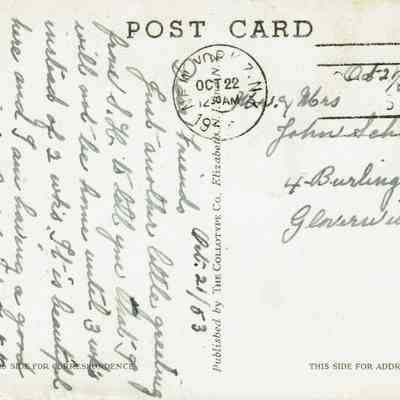 POST CARD
NEW YORK, N.Y.
OCT 22
12 30 AM
Oct 21/53
Friends
Just another little greeting
from S. to tell you that I
will not be home until 3 wks
instead of 2 wks. It is beautiful
here and I am having a good
Published by THE COLLOTYPE CO., Elizabeth, N.
Oct 21/
Mrs
John Sch
4 Burling
Gloversvi
SIDE FOR CORRESPONDENCE
THIS SIDE FOR ADDR